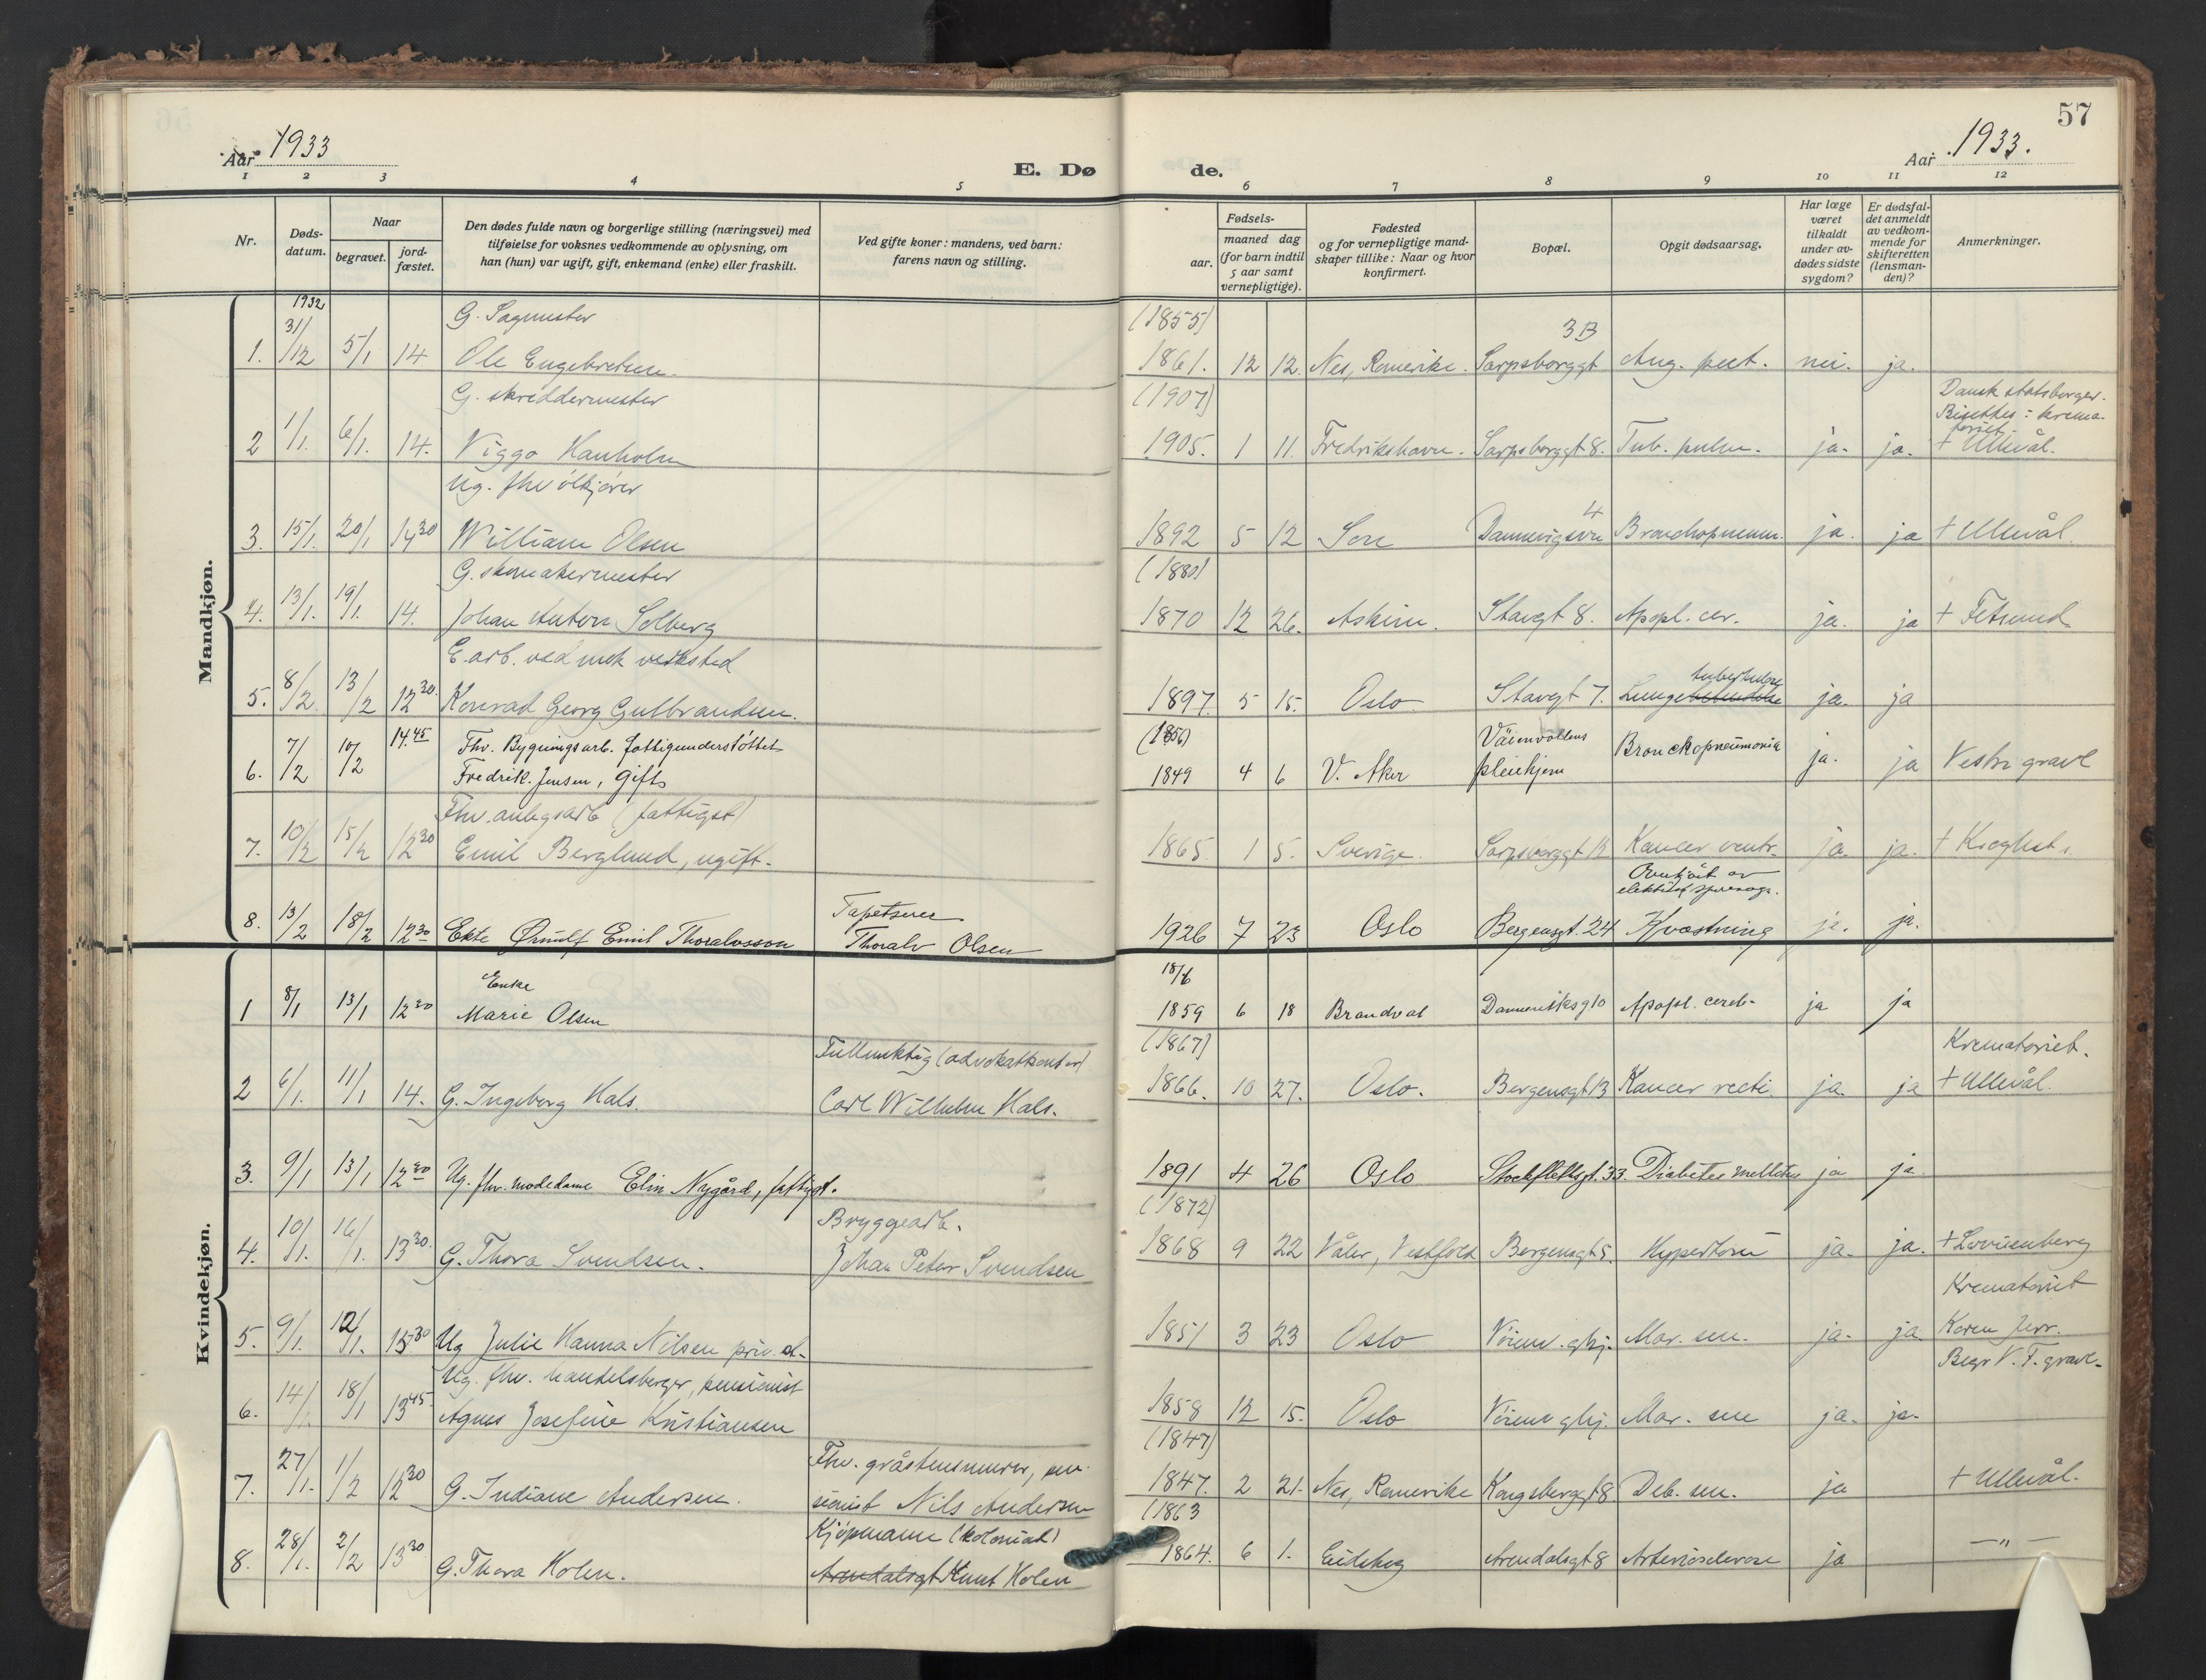 57
Aar 1933
E. Dø
de.
Aar 1933.
1 2 3 4 5 6 7 8 9 10 11 12
Nr.
Døds-
datum.
Naar
begravet.
jord-
fæstet.
Den dødes fulde navn og borgerlige stilling (næringsvei) med
tilføielse for voksnes vedkommende av oplysning, om
han (hun) var ugift, gift, enkemand (enke) eller fraskilt.
Ved gifte koner: mandens, ved barn:
farens navn og stilling.
aar.
Fødsels-
maaned dag
(for barn indtil
5 aar samt
vernepligtige).
Fødested
og for vernepligtige mand-
skaper tillike: Naar og hvor
konfirmert.
Bopæl.
Opgit dødsaarsag.
Har læge
været
tilkaldt
under av-
dødes sidste
sygdom?
Er dødsfal-
det anmeldt
av vedkom-
mende for
skifteretten
(lensman-
den)?
Anmerkninger.
Mandkjøn.
1932 G. Sagmester (1855) 3B
1. 31/12 5/1 14. Ole Engebretsen. 1861. 12 12. Nes, Romerike. Sarpsborggt Ang. pect. nei. ja.
G. skreddermester (1907) Dansk statsborger.
Bisettes i krema-
toriet.
2 1/1. 6/1. 14. Viggo Hanholm 1905. 1 11. Fredrikshavn. Sarpsborggt 8. Tub. pulm. ja. ja. + Ullevål.
Ug. fhv ølkjører 4
3. 15/1. 20/1 14 30 William Olsen 1892 5 12 Son Dannevigsvn Bronchopneum. ja. ja + Ullevål.
G. skomakermester (1880)
4. 13/1. 19/1. 14. Johan Anton Solberg 1870 12 26. Askim. Stavgt 8. Apopl. cer. ja. ja + Fetsund
E. arb. ved mek verksted tuberkulose
5. 8/2. 13/2 12 30. Konrad Georg Gulbrandsen. 1897. 5 15. Oslo Stavgt 7. Lungebetendelse ja. ja
14.45 Fhv. Bygningsarb. fattigunderstøttet (1856) Väienvollens
6. 7/2 10/2 Fredrik Jensen, Gift 1849 4 6 V. Aker pleiehjem Bronchopneumonia ja. ja Vestre gravl
Fhv. anlegsarb (fattigst)
7. 10/2 15/2 12 30 Emil Berglund, ugift. 1865. 1 5. Sverige. Sarpsborggt 12 Kancer ventr. ja. ja. + Kroghst.
Tapetserer Overkjørt av
elektrisk sporvogn.
8. 13/2 18/2 12 30 Ekte Ørnulf Emil Thoralvsson Thoralv Olsen 1926 7 23 Oslo Bergensgt. 24 Kvæstning ja. ja.
Kvindekjøn.
Enke 18/6
1 8/1 13/1 12 30 Marie Olsen 1859 6 18 Brandval Danneviksg 10 Apopl. cereb. ja ja
Fullmektig (advokatkontor) (1867) Krematoriet.
2 6/1. 11/1 14. G. Ingeborg Hals. Carl Wilhelm Hals. 1866. 10 27. Oslo. Bergensgt 13 Kancer recti. ja. ja + Ullevål.
3. 9/1 13/1 12 30 Ug. fhv. modedame Elin Nygård, fattigst. 1891 4 26 Oslo Stockfletsgt. 33. Diabetes mellitus ja ja
Bryggearb. (1872)
4. 10/1. 16/1. 13 30. G. Thora Svendsen. Johan Peter Svendsen 1868 9 22 Våler, Vestfold Bergensgt 5. Hypertoni ja. ja. + Lovisenberg
Krematoriet
5. 9/1. 12/1. 15 30 Ug Julie Hanna Nilsen priv. 1851 3 23 Oslo Mar. sen. ja. ja
Ug. fhv. handelsberger, pensionist Begr V. F. gravl.
6. 14/1. 18/1 13 45. Agnes Josefine Kristiansen 1858 12 15. Oslo Mar. sen ja. ja.
Fhv. gråstensmurer, pen- (1847)
7. 27/1. 1/2 12 30 G. Indiane Andersen. sionist Nils Andersen 1847. 2 21. Nes, Romerike Kongsberggt 8 Deb. sen. ja + Ullevål.
Kjøpmann (kolonial) (1863
8. 28/1. 2/2 13 30 G. Thora Holen. Arendalsgt Knut Holen 1864. 6 1. Eidskog Arendalsgt 8 Arteriosclerose ja — " —